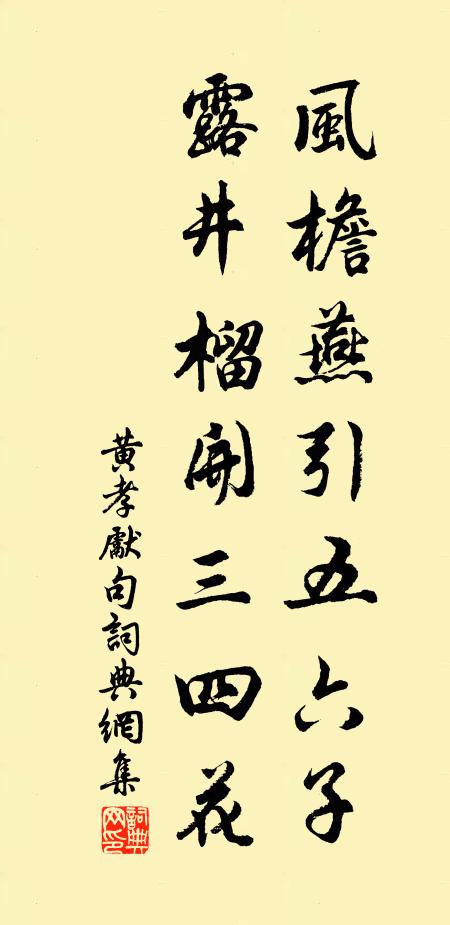 風檐燕引五六子
露井榴開三四花
黄孝獻句詞典網集
詞典网印